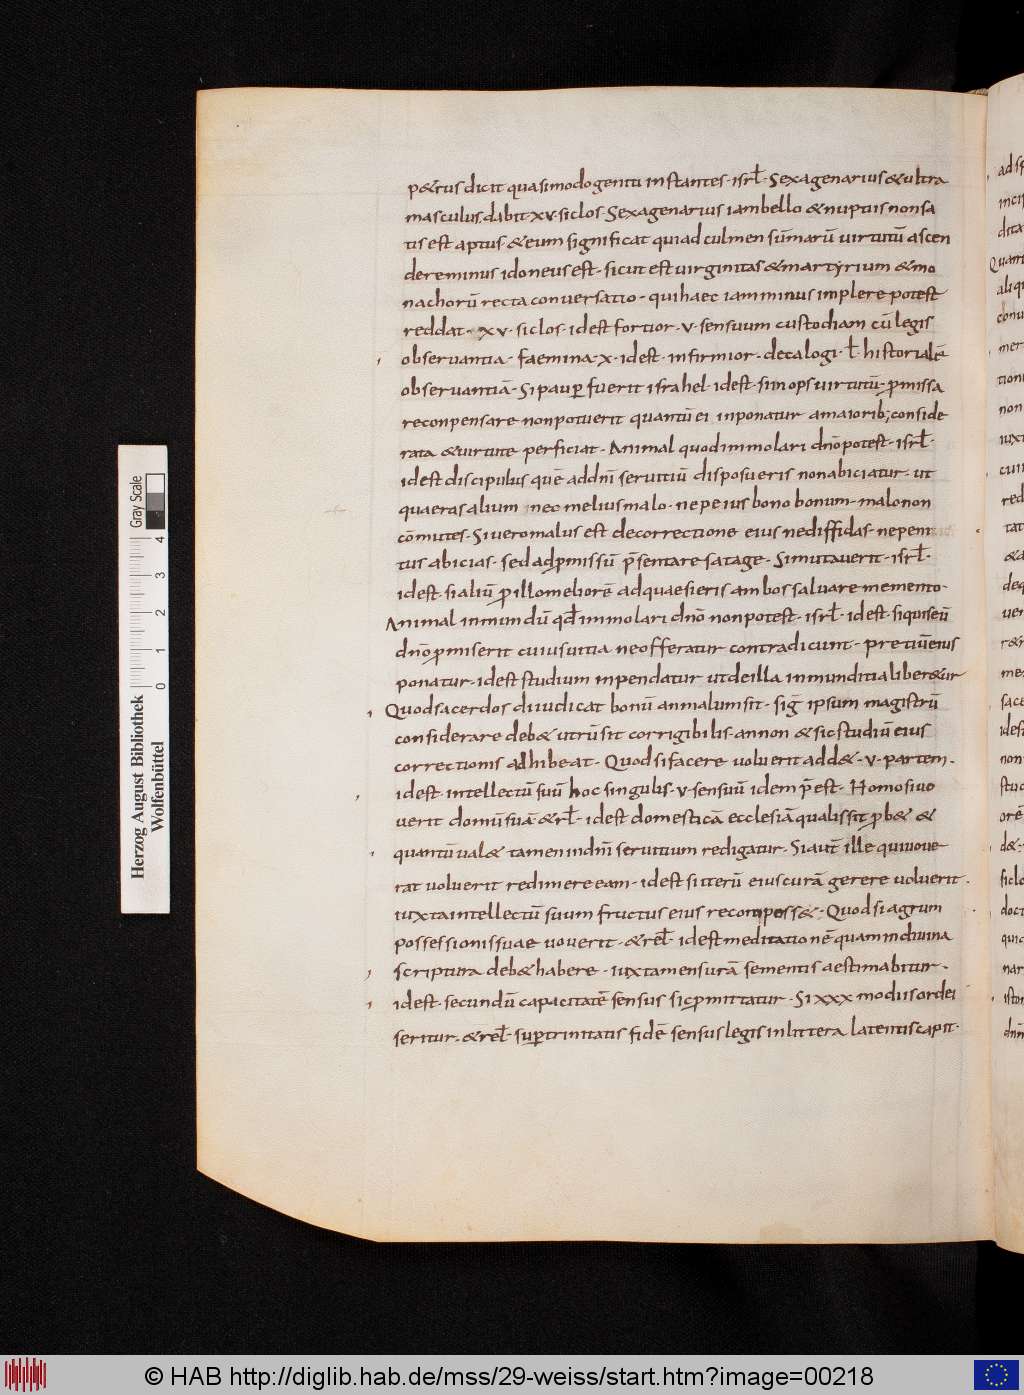 p&rus dicit quasimodogeniti instantes · isrł · Sexagenarius & ultra
masculus dabit xv · siclos · Sexagenarius iam bello & nuptiis non sa
tis est aptus & eum significat qui ad culmen sūmarū virtutū ascen
dere minus idoneus est · sicut est virginitas & martyrium & mo
nachorū recta conversatio · qui haec iam minus implere potest
reddat · xv · siclos · id est fortior · v · sensuum custodiam cū legis
observantia · faemina · x · id est · infirmior · decalogi · ł · historialē
observantiā · Si paup fuerit israhel · id est · sinops virtutū · pmissa
reconpensare non potuerit quantū ei inponatur a maiorib; conside
rata & virtute perficiat · Animal quod immolari dnō potest · isrł ·
id est discipulus quē ad dnī servitiū disposueris non abiciatur · ut
quaeras alium nec melius malo · ne peius bono bonum · malo non
cōmutes · Si vero malus est de correctione eius ne diffidas · ne peni
tus abicias · sed ad pmissū p̄sentare satage · Si mutaverit · isrł ·
id est · si aliū p illo meliorē adquaesieris ambos salvare memento ·
Animal inmundū qd̄ immolari dnō non potest · isrł · id est · si quis eū
dnō pmiserit cuius vitia ne offeratur contradicunt · pretiū eius
ponatur · id est studium inpendatur ut de illa inmunditia liber&ur
Quod sacerdos diiudicat bonū an malum sit · siḡ ipsum magistrū
considerare deb& utrū sit corrigibilis · an non & sic studiū eius
correctionis adhibeat · Quod si facere voluerit add& · v · partem ·
id est · intellectū suū hoc singulis · v · sensuū idem p̄ est · Homo si vo
verit domū suā & rł · id est domesticā ecclesiā qualis sit pb& &
quantū val& tamen in dnī servitium redigatur · Si aut̄ ille qui vove
rat voluerit redimere eam · id est si iterū eius curā gerere voluerit ·
iuxta intellectū suum fructus eius recompess& · Quod si agrum
possessionis suae voverit · & rel̄ · id est meditationē quam in divina
scriptura deb& habere · iuxta mensurā sementis aestimabitur ·
id est · secundū capacitatē sensus sic pmittatur · Si xxx modiis ordei
seritur · & rel̄ · sup trinitatis fidē sensus legis in littera latentis capit ·
Herzog August Bibliothek
Wolfenbüttel
0 1 2 3 4
Gray Scale
© HAB http://diglib.hab.de/mss/29-weiss/start.htm?image=00218